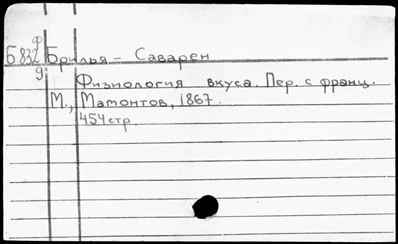 Ф
Б 832 Брилья - Саварен
9
Физиология вкуса. Пер. с франц.
М., Мамонтов, 1867.
454 стр.